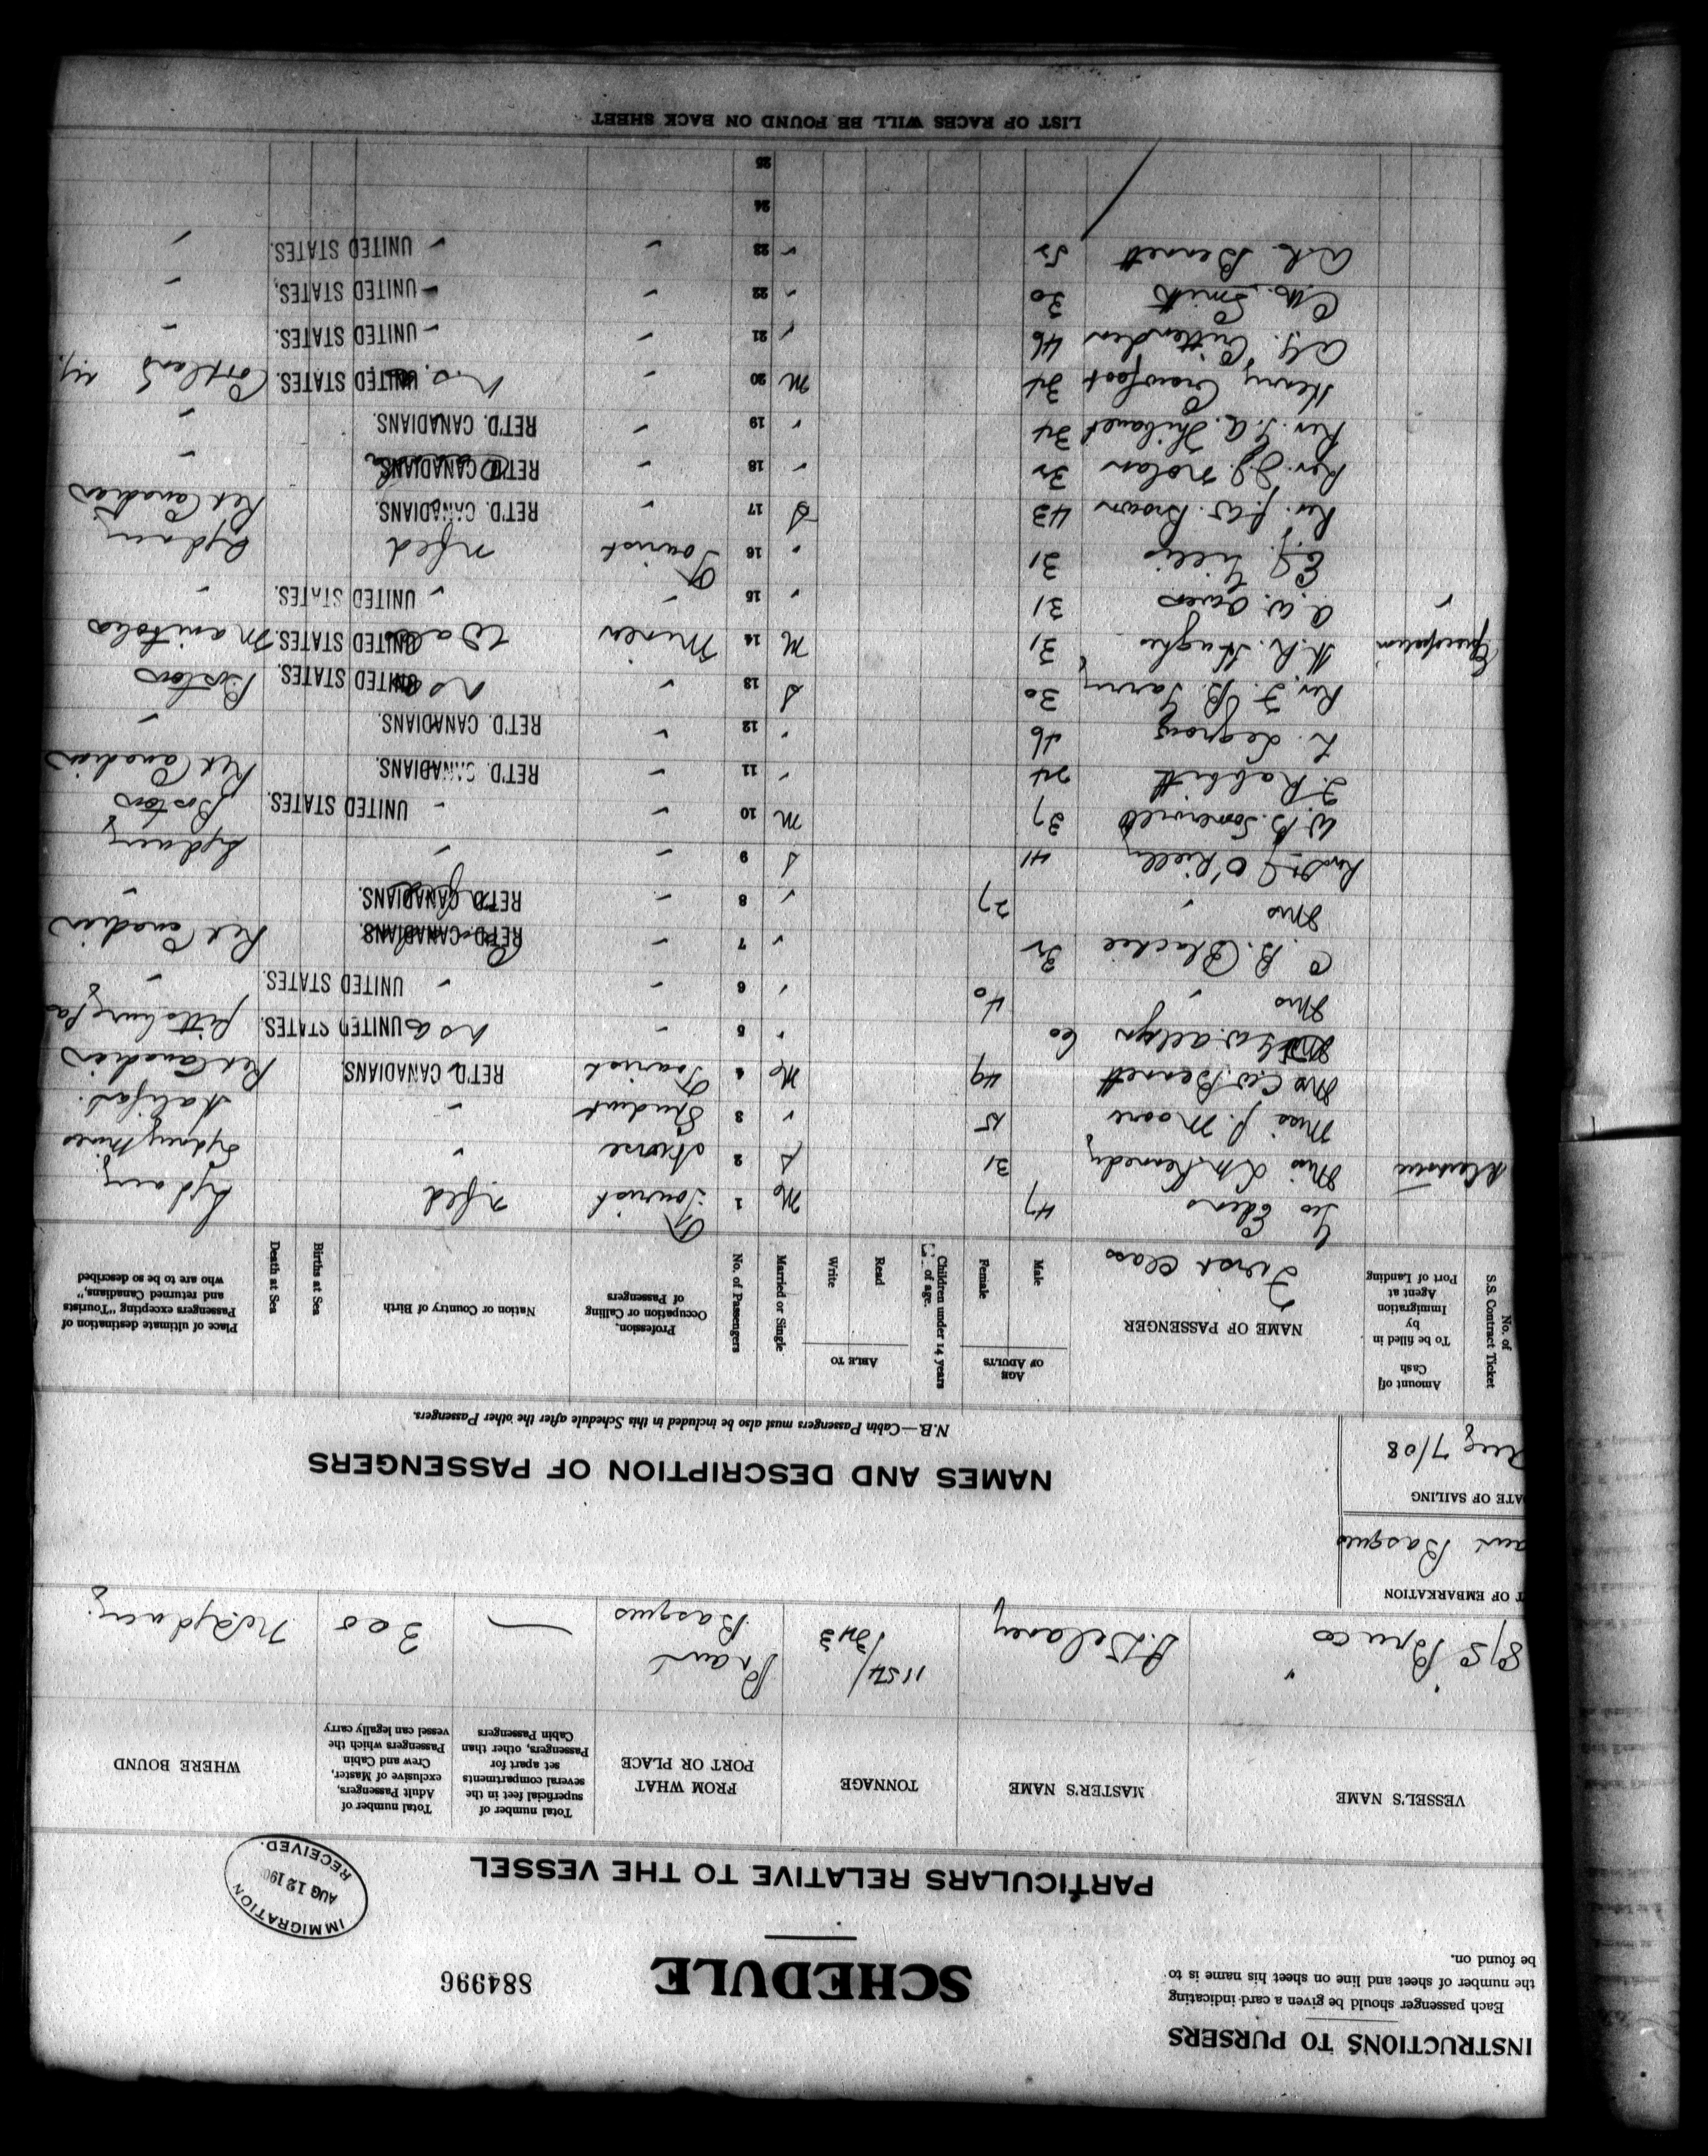 INSTRUCTIONS TO PURSERS
Each passenger should be given a card indicating
the number of sheet and line on sheet his name is to
be found on.
SCHEDULE
884996
IMMIGRATION
AUG 12 190
RECEIVED.
PARTICULARS RELATIVE TO THE VESSEL
VESSEL'S NAME
MASTER'S NAME
TONNAGE
FROM WHAT
PORT OR PLACE
Total number of
superficial feet in the
several compartments
set apart for
Passengers, other than
Cabin Passengers
Total number of
Adult Passengers,
exclusive of Master,
Crew and Cabin
Passengers which the
vessel can legally carry
WHERE BOUND
S/S "Bruce" Delaney 1154/343 Port Basques — 300 N Sydney.
T OF EMBARKATION
Basques
ATE OF SAILING
Aug 7/08
NAMES AND DESCRIPTION OF PASSENGERS
N.B.—Cabin Passengers must also be included in this Schedule after the other Passengers.
No. of
S.S. Contract Ticket
Amount of
Cash
To be filled in
by
Immigration
Agent at
Port of Landing
NAME OF PASSENGER
First Class
AGE
OF ADULTS
Male
Female
Children under 14 years
of age.
ABLE TO
Read
Write
Married or Single
No. of Passengers
Profession,
Occupation or Calling
of Passengers
Nation or Country of Birth
Births at Sea
Death at Sea
Place of ultimate destination of
Passengers excepting "Tourists
and returned Canadians,"
who are to be so described
Geo Edens 47 M 1 Tourist nfld Sydney
Miss Kennedy 31 S 2 Nurse " Sydney Mines
Miss J. Moore 15 " 3 Student " Halifax.
Mrs C.W. Bennett 49 M 4 Tourist RET'D. CANADIANS. Ret Canadien
W. 60 " 5 " USA UNITED STATES. Pittsburg Pa
Mrs " 40 " 6 " " UNITED STATES "
C. B. Blackie 32 " 7 " RET'D. CANADIANS. Ret Canadien
Mrs " 27 " 8 " RET'D. CANADIANS. "
O'Rielly 41 S 9 " " Sydney
W. B. Somervill 37 M 10 " " UNITED STATES. Boston
J. Rabbitt 24 " 11 " RET'D. CANADIANS. Ret Canadien
L. Legrow 46 " 12 " RET'D. CANADIANS. "
Rev. F. B. 30 S 13 " UNITED STATES. Boston
Episcopalian H. R. Hughes 31 M 14 Miner UNITED STATES. Manitoba
" A. W. Owens 31 " 15 " " UNITED STATES. "
E. J. Gillis 31 " 16 Tourist nfld Sydney
Rev. J. W. Brown 43 S 17 " RET'D. CANADIANS. Ret Canadien
Rev. J. J. Nolan 32 " 18 " RET'D. CANADIANS. "
Rev. A. Thibault 34 " 19 " RET'D. CANADIANS. "
Henry Crowfoot 34 M 20 " UNITED STATES. Cortland N.Y.
A. J. Crittenden 46 " 21 " " UNITED STATES. "
Smith 30 " 22 " " UNITED STATES. "
Bennett 52 " 23 " " UNITED STATES. "
24
25
LIST OF RACES WILL BE FOUND ON BACK SHEET